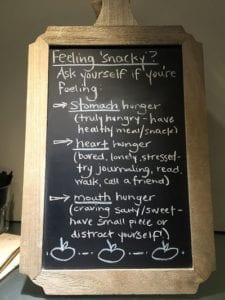 Feeling 'snacky'?
Ask yourself if you're
feeling:
stomach hunger
(truly hungry - have
healthy meal/snack)
heart hunger
(bored, lonely, stressed-
try journaling, read,
walk, call a friend)
mouth hunger
(craving salty/sweet-
have small piece or
distract yourself!)